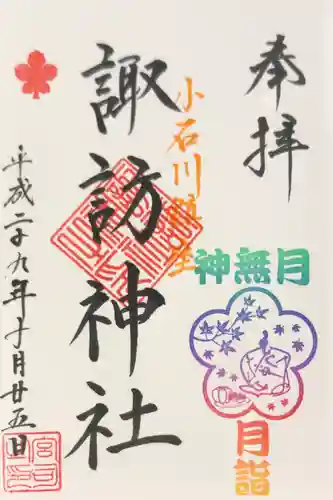 奉拝
小石川鎮座
諏訪神社
神無月
月詣
平成二十九年十月廿五日
宮司